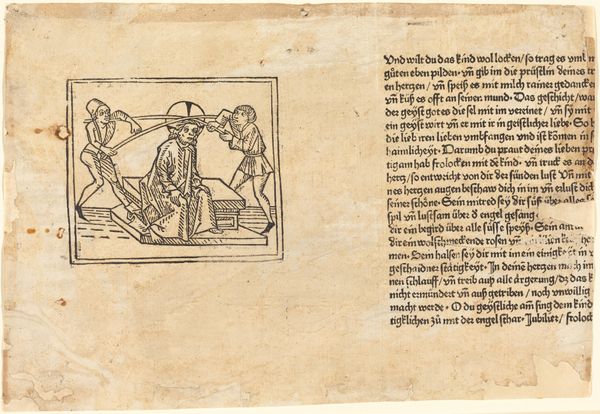 Vnd wilt du das kind wol locken/ so trag es vmb m
gůten eben pilden· vñ gib im die prüstlin deines tr
en hertzen/ vñ speiß es mit milch rainer gedancken
vñ küß es offt an seinen mund· Das geschicht/ wan
der geyst gotes die sel mit im vereinet/ vñ sy mit
ein geyste wirt vñ er mit ir in geistlicher liebe· So h
die lieb iren lieben vmbfangen vnd ist kömen in s
haimlicheyt· Darumb du praut deines lieben pr
tigam hab frolocken mit dē kind· vñ truck es an d
hertz/ so entweicht von dir der sünden lust Vñ mit
nes hertzen augen beschaw dich in im vñ erlust dich
seiner schöne· Sein mit red sey dir süß über alles
spil vñ lustsam über d engel gesang·
dir ein begird über alle süsse speyß· Sein
dir ein wolschmeckende rosen vñ
men· Dein halsen sey dir mit im ein einigkeit in v
geschaidner stätigkeyt· In deinē hertzen mach im
nen schlauff/ vñ treib auß alle ärgerung/ dz das k
nicht ermündert vñ auß getriben/ noch vnwillig
macht werde· O du geystliche am̄ sing dem kind
tigklichen zů mit der engel schar· Jubilier/ frolock